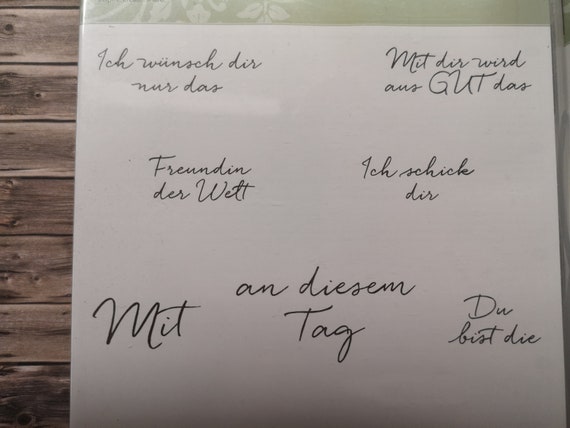 Ich wünsch dir
nur das
Mit dir wird
aus GUT das
Freundin
der Welt
Ich schick
dir
an diesem
Tag
Mit
Du
bist die